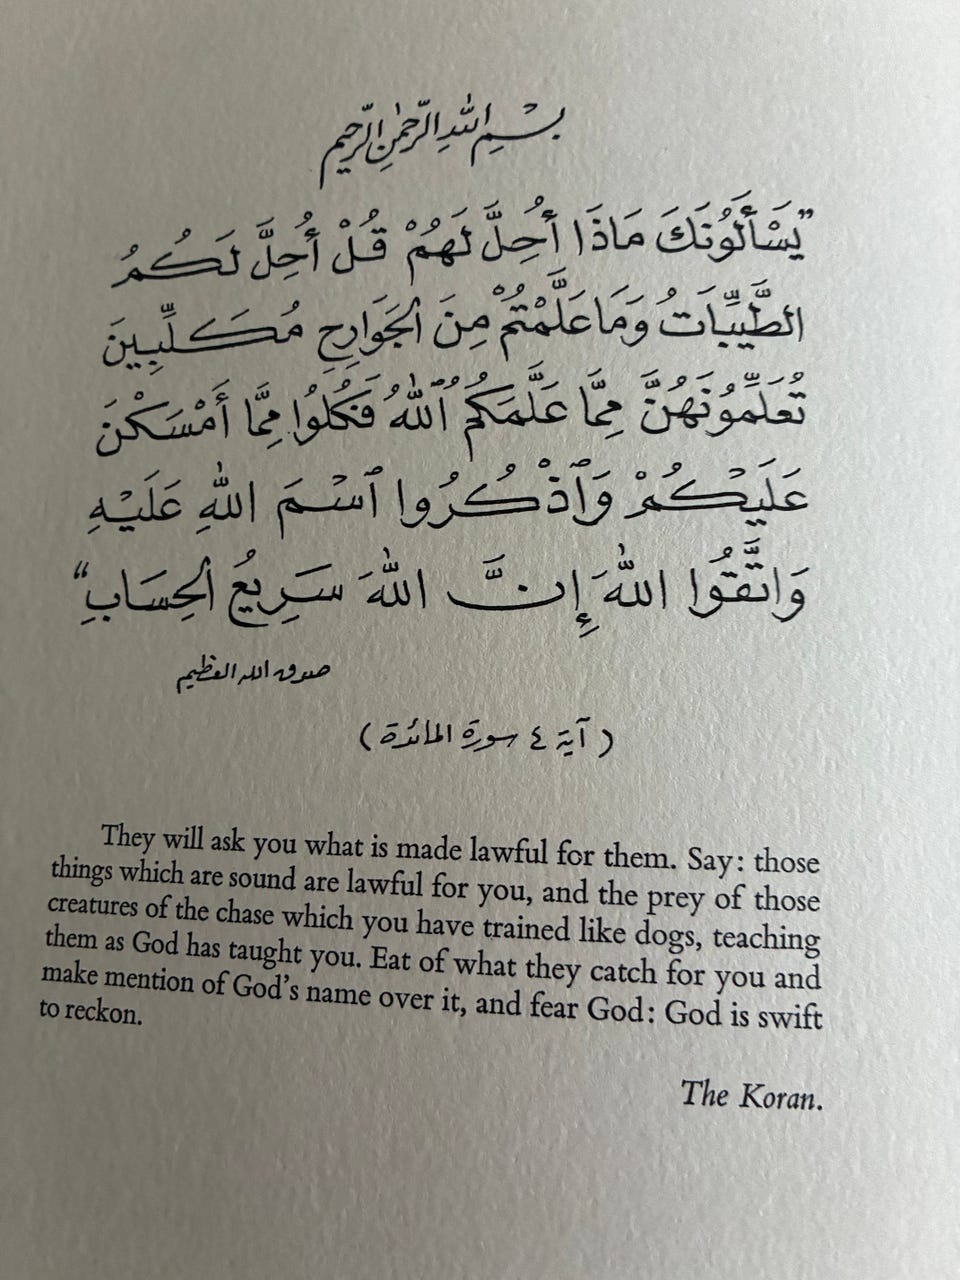 بِسْمِ اللهِ الرَّحْمٰنِ الرَّحِيمِ
”يَسْأَلُونَكَ مَاذَا أُحِلَّ لَهُمْ قُلْ أُحِلَّ لَكُمُ
الطَّيِّبَاتُ وَمَا عَلَّمْتُمْ مِنَ الْجَوَارِحِ مُكَلِّبِينَ
تُعَلِّمُونَهُنَّ مِمَّا عَلَّمَكُمُ ٱللهُ فَكُلُوا مِمَّا أَمْسَكْنَ
عَلَيْكُمْ وَٱذْكُرُوا ٱسْمَ اللهِ عَلَيْهِ
وَاتَّقُوا اللهَ إِنَّ اللهَ سَرِيعُ الْحِسَابِ“
صدق الله العظيم
(آية ٤ سورة المائدة)
They will ask you what is made lawful for them. Say: those
things which are sound are lawful for you, and the prey of those
creatures of the chase which you have trained like dogs, teaching
them as God has taught you. Eat of what they catch for you and
make mention of God's name over it, and fear God: God is swift
to reckon.
The Koran.